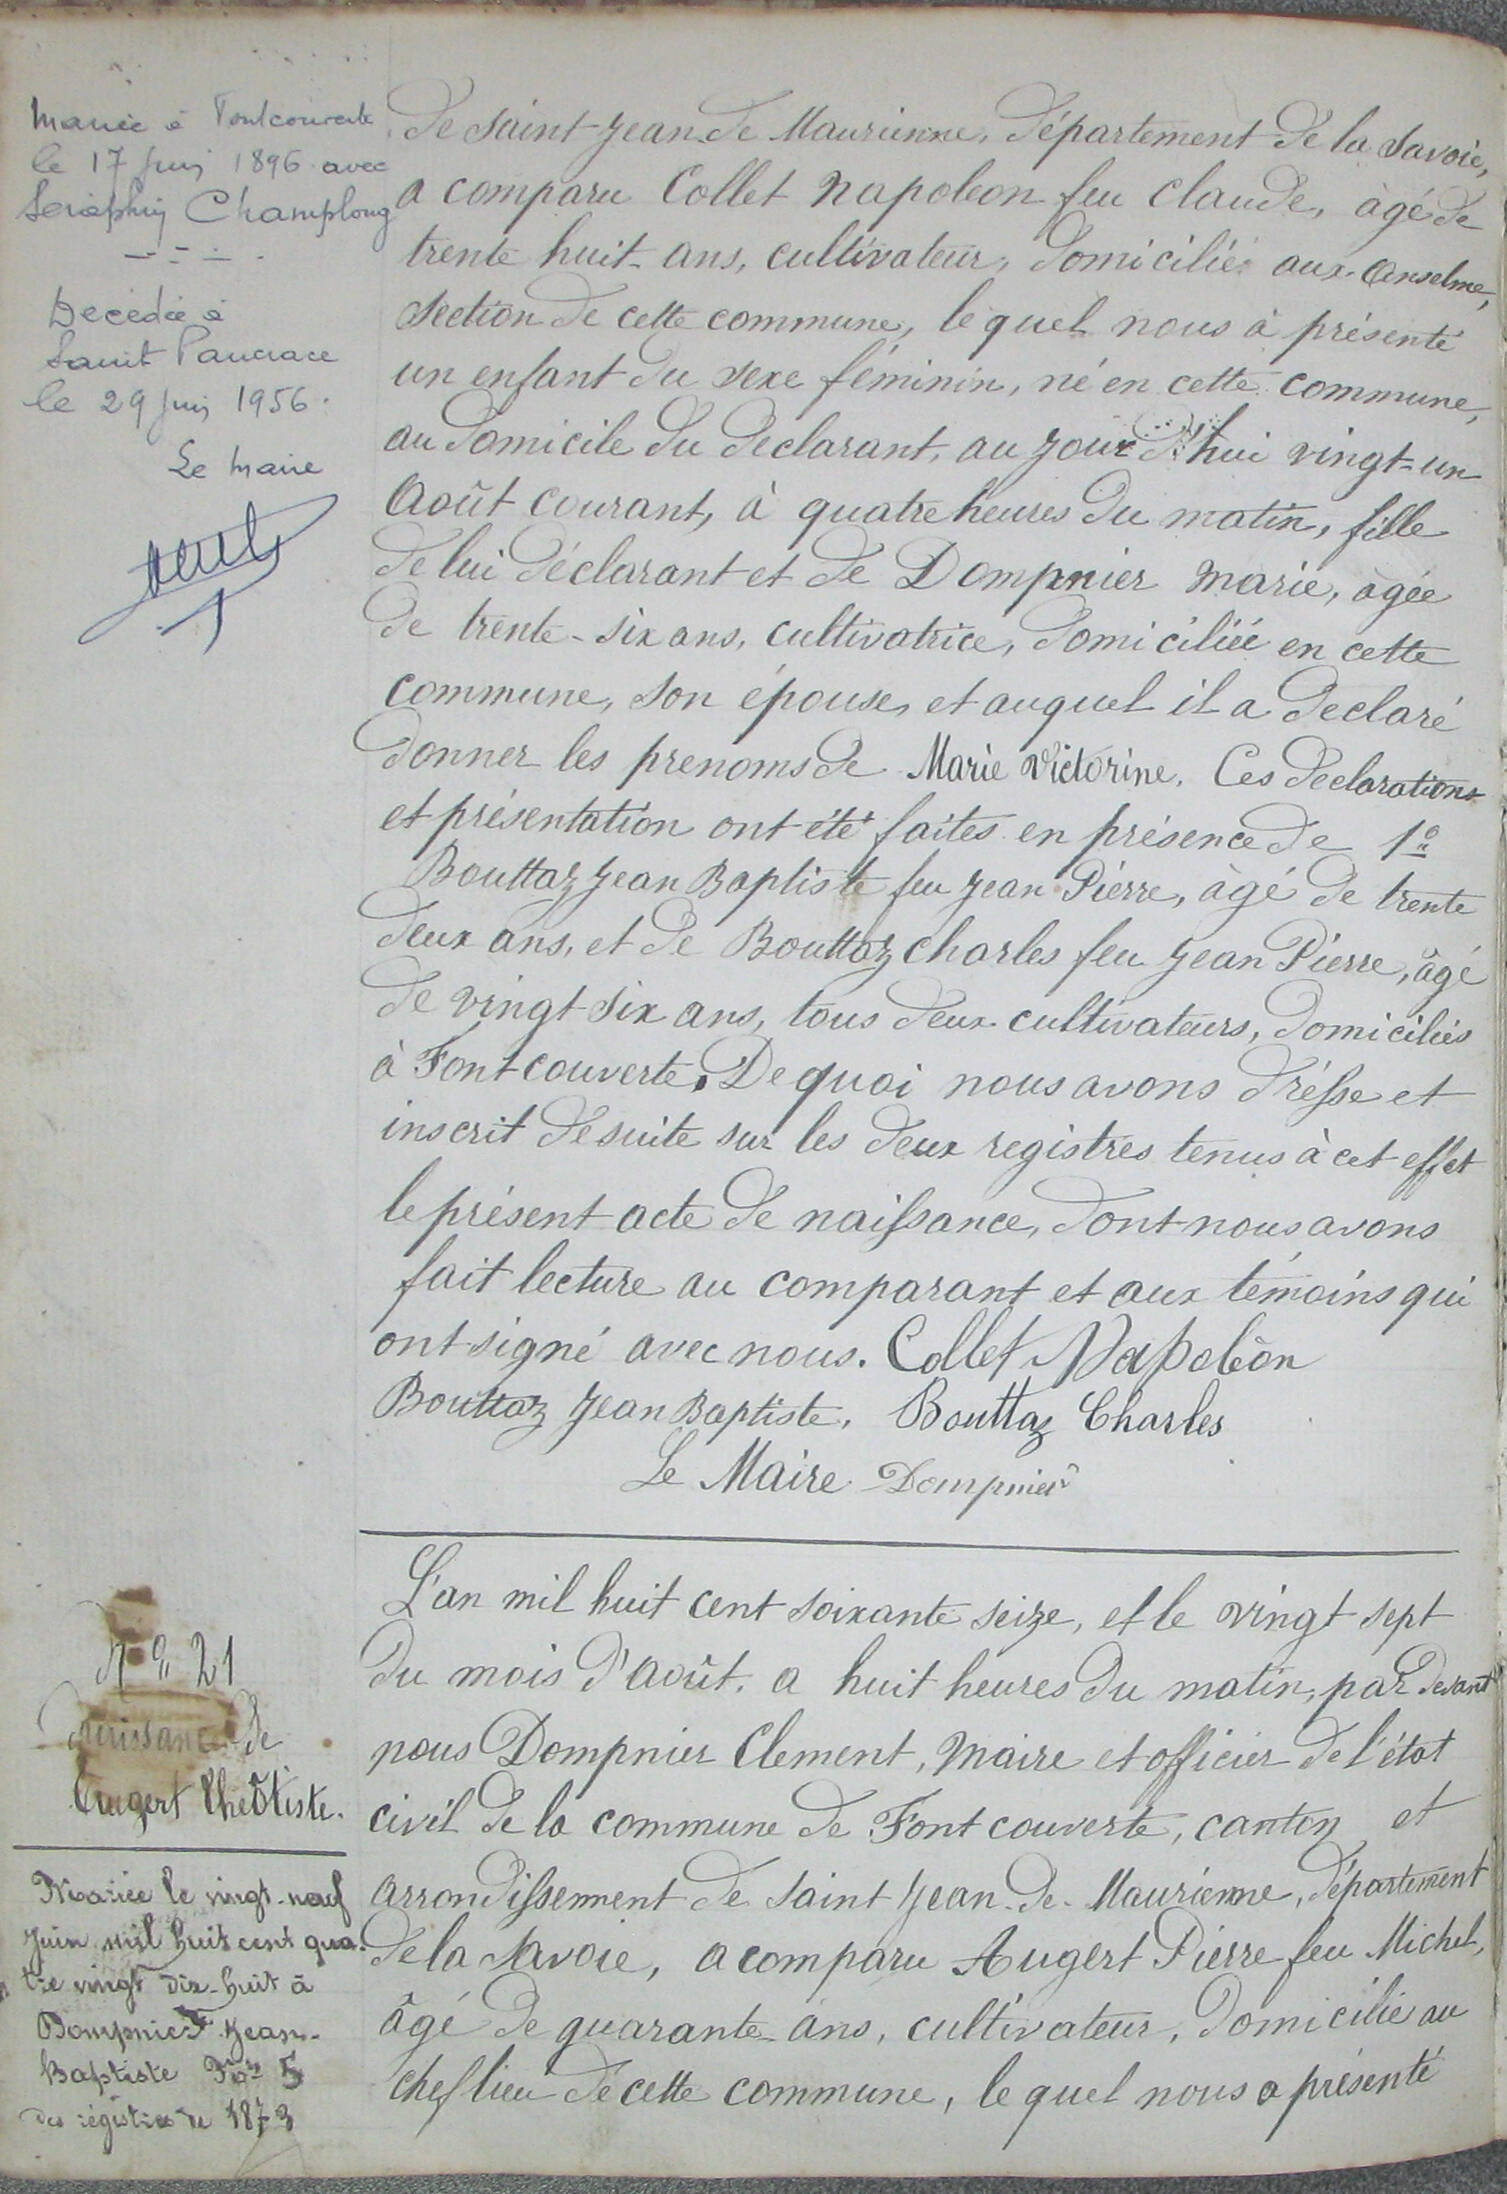 Mariée à Fontcouverte
le 17 Juin 1896 avec
Séraphin Champlong
Décédée à
Saint Pancrace
le 29 Juin 1956.
Le Maire
de Saint Jean de Maurienne, département de la Savoie,
a comparu Collet Napoléon feu Claude, âgé de
trente huit ans, cultivateur, domicilié aux Anselme,
Section de cette commune, le quel nous à présenté
un enfant du sexe féminin, né en cette commune,
au domicile du declarant, au jour d'hui vingt-un
Août courant, à quatre heures du matin, fille
de lui déclarant et de Dompnier Marie, âgée
de trente-six ans, cultivatrice, domiciliée en cette
commune, son épouse, et auquel il a declaré
donner les prenoms de Marie Victorine. Ces declarations
et présentation ont été faites en présence de 1º
Bouttaz Jean Baptiste feu Jean Pierre, âgé de trente
deux ans, et de Bouttaz Charles feu Jean Pierre, âgé
de vingt six ans, tous deux cultivateurs, domiciliés
à Fontcouverte. De quoi nous avons drésse et
inscrit de suite sur les deux registres tenus à cet effet
le présent acte de naissance, dont nous avons
fait lecture au comparant et aux témoins qui
ont signé avec nous. Collet Napoléon
Bouttaz Jean Baptiste, Bouttaz Charles
Le Maire Dompnier
Nº 21
Naissance de
Augert Théotiste.
Mariée le vingt-neuf
Juin mil huit cent qua-
tre vingt dix-huit à
Dompnier Jean-
Baptiste Nº 5
des régistres de 1873
L'an mil huit cent soixante seize, et le vingt sept
du mois d'août, a huit heures du matin, par devant
nous Dompnier Clement, Maire et officier de l'état
civil de la commune de Fontcouverte, canton et
arrondissement de Saint Jean-de-Maurienne, département
de la Savoie, a comparu Augert Pierre feu Michel,
âgé de quarante ans, cultivateur, domicilié au
chef lieu de cette commune, le quel nous a présenté